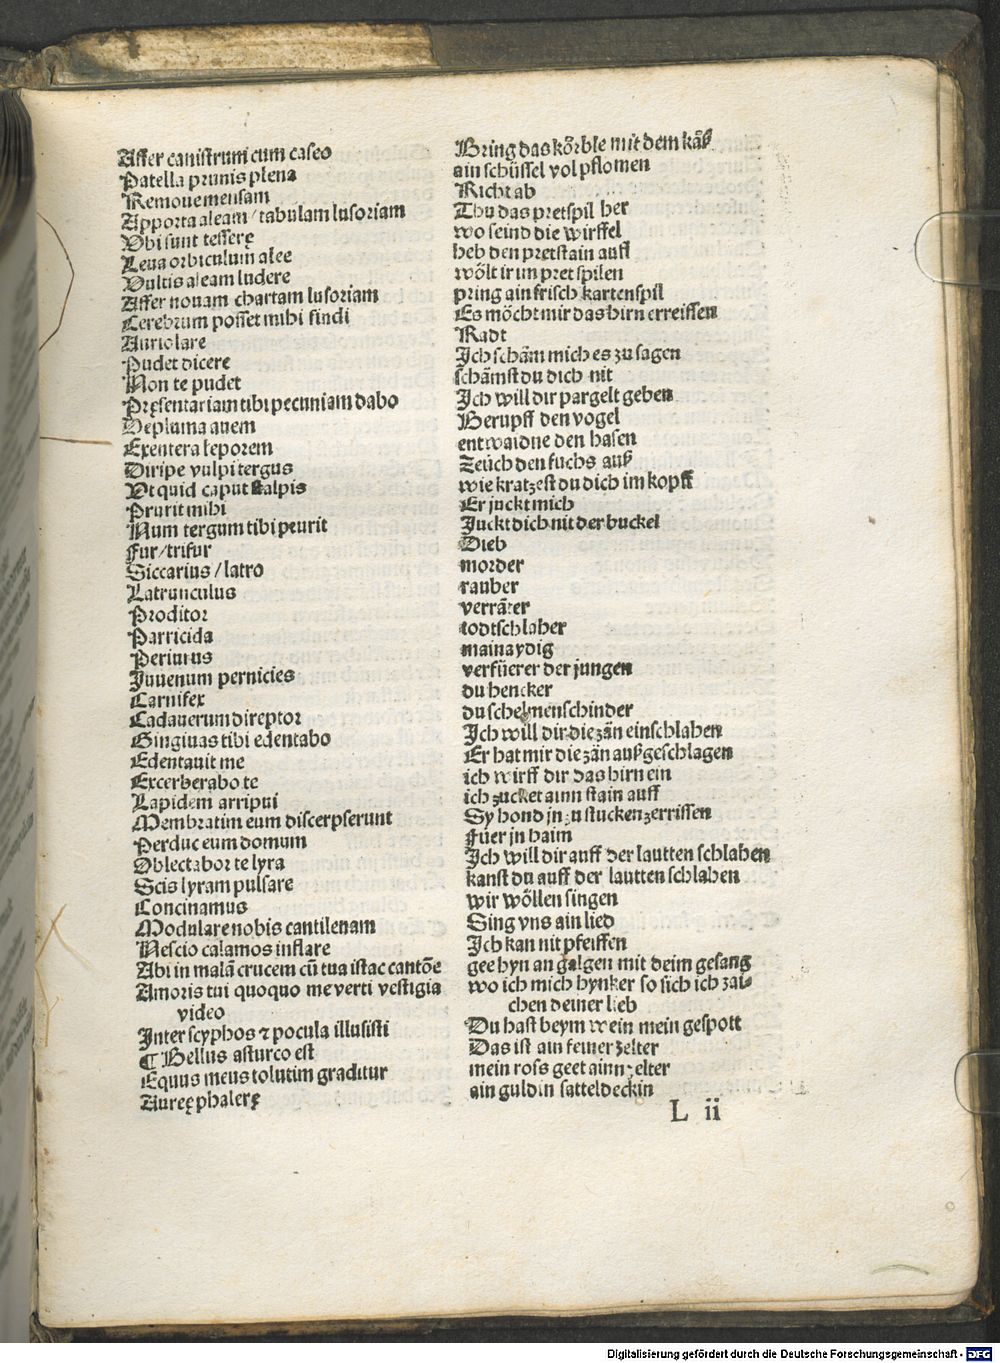 Affer canistrum cum caseo
Patella prunis plena
Remoue mensam
Apporta aleam / tabulam lusoriam
Vbi sunt tesserę
Leua orbiculum alee
Vultis aleam ludere
Affer nouam chartam lusoriam
Cerebrum posset mihi findi
Auriolare
Pudet dicere
Non te pudet
Pręsentariam tibi pecuniam dabo
Depluma auem
Exentera leporem
Diripe vulpi tergus
Vt quid caput scalpis
Prurit mihi
Num tergum tibi peurit
Fur / trifur
Siccarius / latro
Latrunculus
Proditor
Parricida
Periurus
Juuenum pernicies
Carnifex
Cadauerum direptor
Gingiuas tibi edentabo
Edentauit me
Excerberabo te
Lapidem arripui
Membratim eum discerpserunt
Perduc eum domum
Oblectabor te lyra
Scis lyram pulsare
Concinamus
Modulare nobis cantilenam
Nescio calamos inflare
Abi in malā crucem cū tua istac cantōe
Amoris tui quoquo me verti vestigia
video
Inter scyphos ⁊ pocula illusisti
¶ Bellus asturco est
Equus meus tolutim graditur
Aureę phalerę
Bring das kőrble mit dem kåß
ain schüssel vol pflomen
Richt ab
Thu das pretspil her
wo seind die wirffel
heb den pretstain auff
wőlt ir un pret spilen
pring ain frisch kartenspil
Es mőcht mir das hirn erreissen
Radt
Ich schåm mich es zu sagen
schåmst du dich nit
Ich will dir pargelt geben
Berupff den vogel
entwaidne den hasen
Zeüch den fuchs auß
wie kratzest du dich im kopff
Er juckt mich
Juckt dich nit der buckel
Dieb
morder
rauber
verråter
todtschlaher
mainaydig
verfüerer der jungen
du hencker
du schelmenschinder
Ich will dir die zän einschlahen
Er hat mir die zän außgeschlagen
ich wirff dir das hirn ein
ich zucket ainn stain auff
Sy hond jn zu stucken zerrissen
Füer jn haim
Ich will dir auff der lautten schlahen
kanst du auff der lautten schlahen
wir wőllen singen
Sing vns ain lied
Ich kan nit pfeiffen
gee hyn an galgen mit deim gesang
wo ich mich hynker so sich ich zai⸗
chen deiner lieb
Du hast beym wein mein gespott
Das ist ain feiner zelter
mein ross geet ainn zelter
ain guldin satteldeckin
L ii
Digitalisierung gefördert durch die Deutsche Forschungsgemeinschaft - DFG